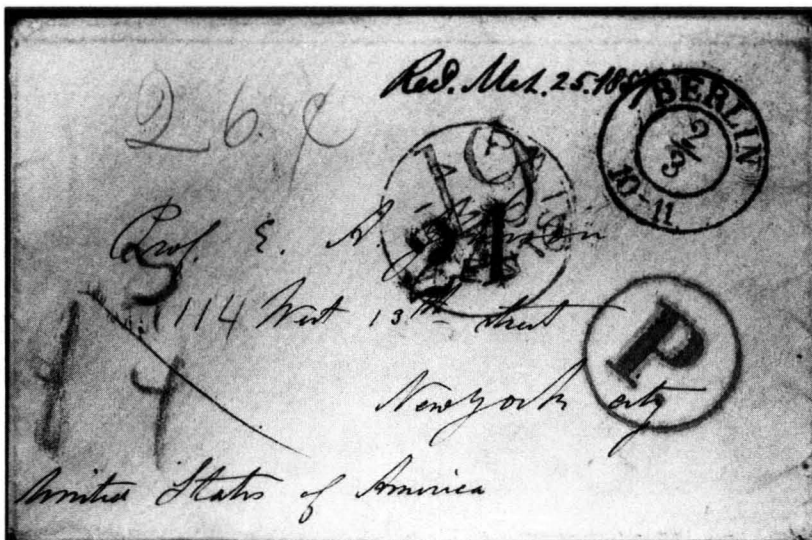 Recd. Mch. 25. 18
BERLIN
2/3
10-11
26.
21
P
Prof. E. A.
114 West 13th street
New York city
United States of America